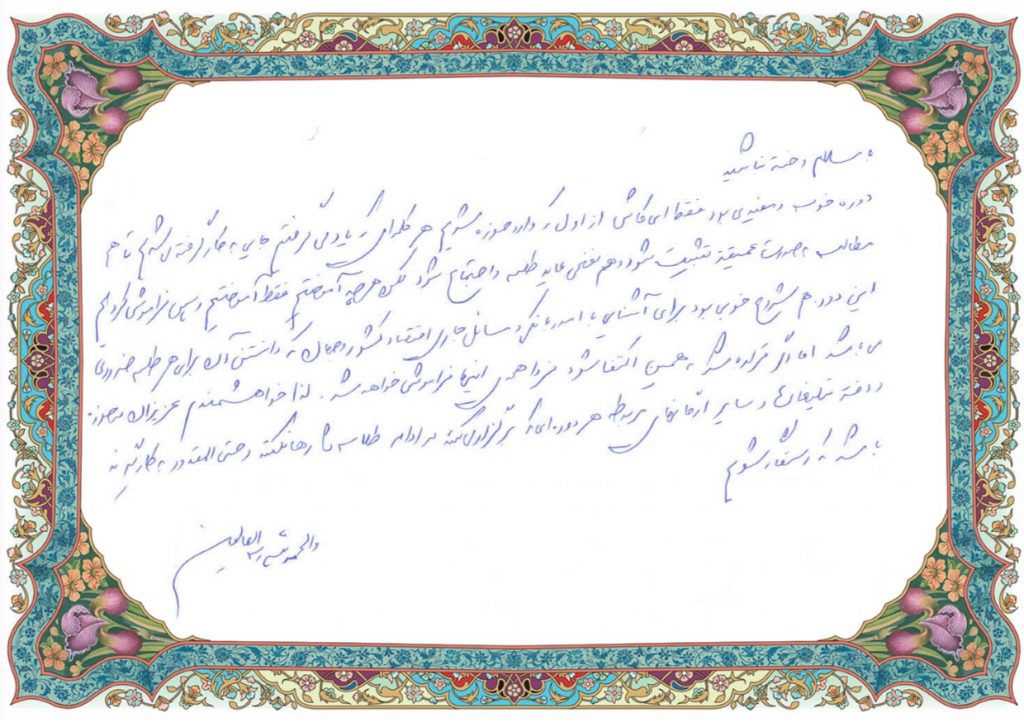 سلام و خسته نباشید
دوره خوب و مفیدی بود فقط ای کاش از اول که وارد حوزه میشویم هر کلمه‌ای که یاد می‌گرفتیم جایی به کار گرفته می‌شدیم تا هم
مطالب به صورت عمیق‌تر تثبیت شود و هم نفعی عاید طلبه و اجتماع شود لکن هر چه آموختیم فقط آموختیم و سپس فراموش کردیم
این دوره هم شروع خوبی بود برای آشنایی با امور بانکی و مسائل جاری اقتصاد کشور و جهان که دانستن آن برای هر طلبه ضروری
می باشد اما اگر قرار باشد به همین اکتفا شود فردا همه‌ی اینها فراموش خواهد شد. لذا خواهشمندم عزیزان در حوزه
و دفتر تبلیغات و سایر ارگانهای مربوطه هر دوره‌ای که برگزار می‌کنند در ادامه طلاب را رها نکنند و حتی المقدور به کار گیرند
باشد که رستگار شویم
والحمدلله رب العالمین